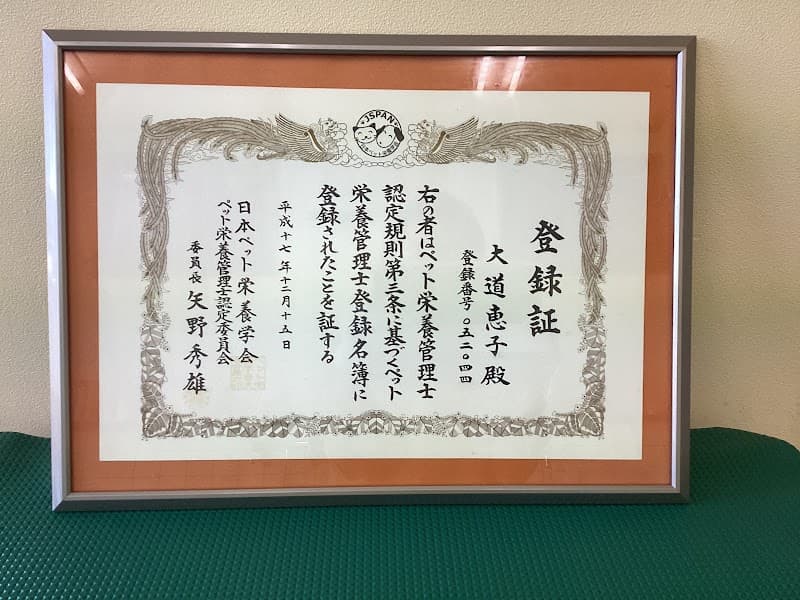 JSPAN
日本ペット栄養学会
登録証
大道恵子殿
登録番号〇五二〇四四
右の者はペット栄養管理士
認定規則第三条に基づくペット
栄養管理士登録名簿に
登録されたことを証する
平成十七年十二月十五日
日本ペット栄養学会
ペット栄養管理士認定委員会
委員長 矢野秀雄